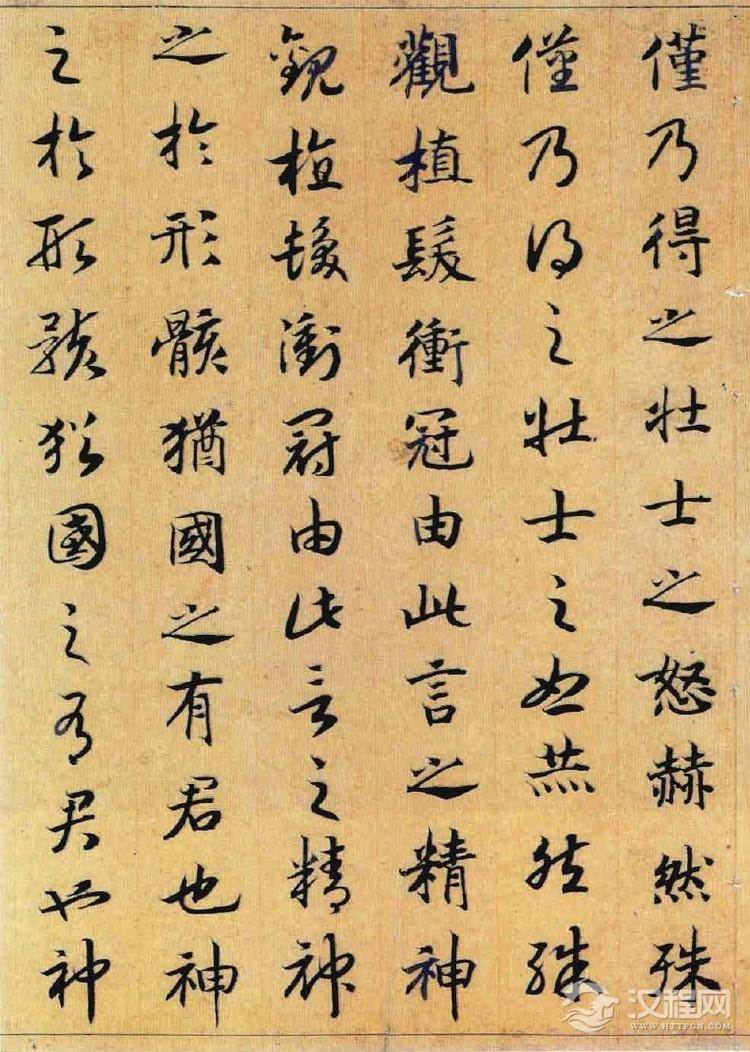 僅乃得之壯士之怒赫然殊
僅乃得之壯士之怒赫然殊
觀植髮衝冠由此言之精神
觀植髮衝冠由此言之精神
之於形骸猶國之有君也神
之於形骸猶國之有君也神
汉程网
WWW.HTTPCN.COM